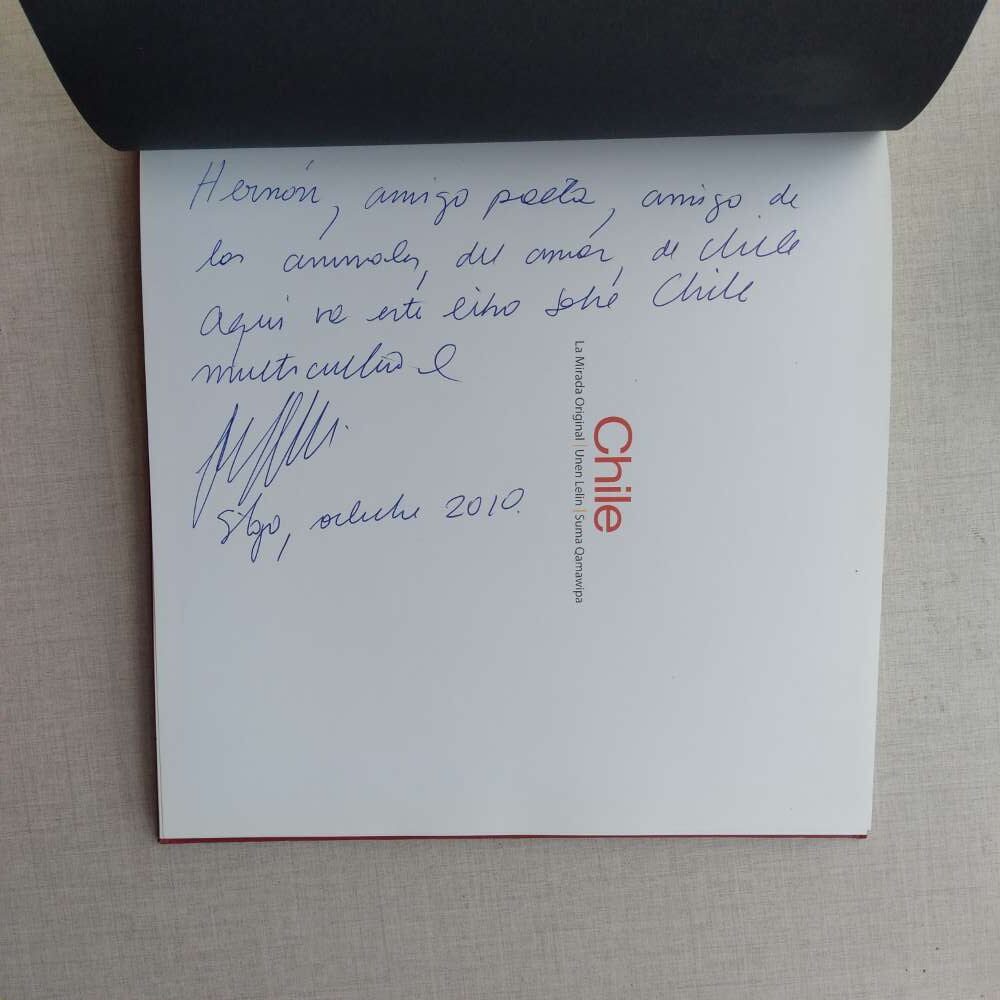 Hernán, amigo poeta, amigo de
los animales, del amor, de Chile
Aquí va este libro sobre Chile
multicultural
Stgo, octubre 2010.
Chile
La Mirada Original | Unen Lelin | Suma Qamawipa